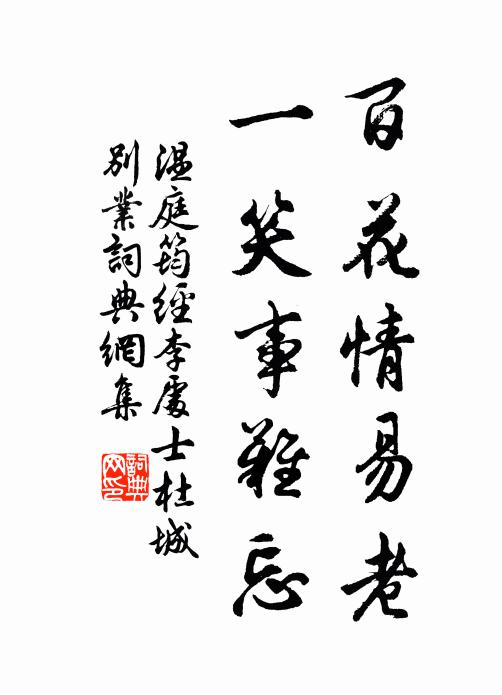 百花情易老
一笑事難忘
温庭筠經李處士杜城
別業詞典網集
詞典
网印